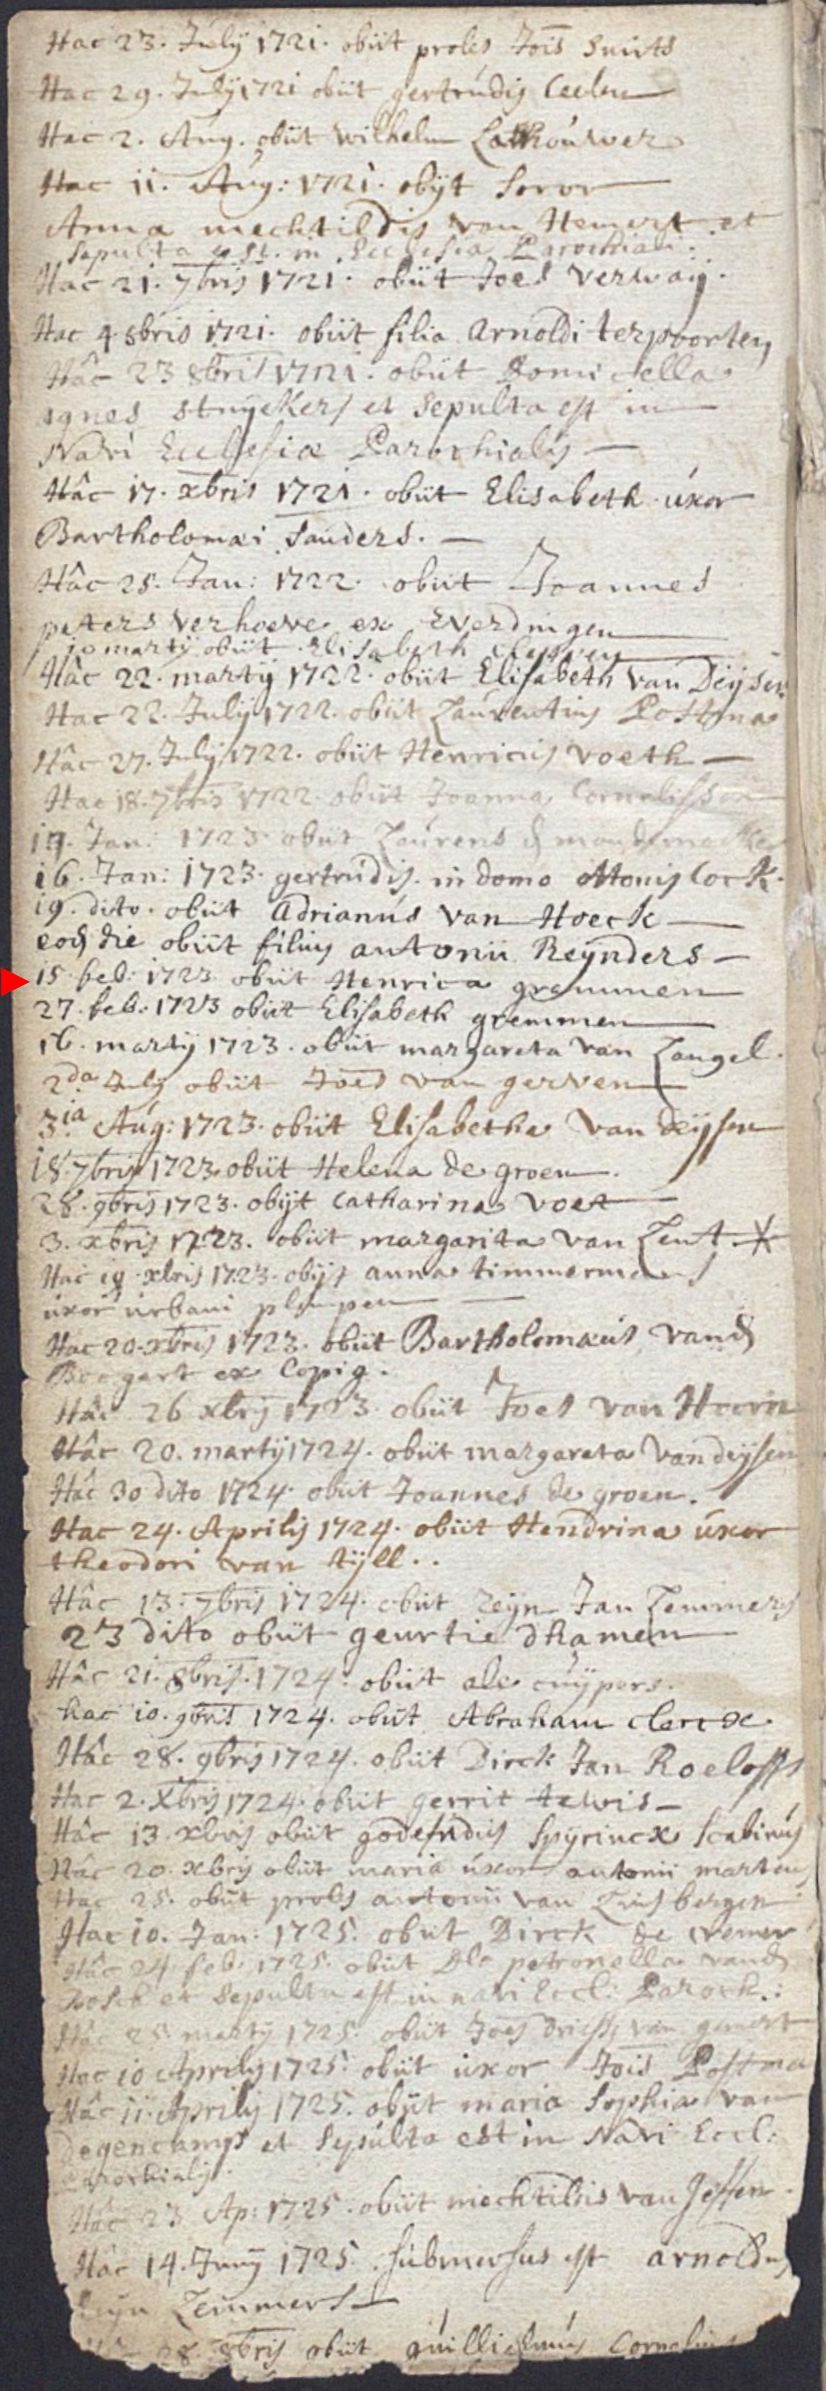 Hac 23. Julÿ 1721. obiit proles Jois Smits
Hac 29. Julÿ 1721 obiit gertrúdis
Hac 2. Aug. obiit wilhelm
Hac 11. Aúg: 1721. obÿt Soror
Anna mechtildis van Hemert et
sepulta est in Ecclesia Parochiali.
Hac 21. 7bris 1721. obiit Joes verwaÿ.
Hac 4 8bris 1721. obiit filia Arnoldi terpoorten
Hâc 23 8bris 1721. obiit Domicella
agnes Stuÿckers et Sepulta est in
Navi Ecclesiæ Parochialis —
Hâc 17. xbris 1721. obiit Elisabeth úxor
Bartholomæi Sanders. —
Hâc 25. Jan: 1722. obiit Joannes
peters verhoeve ex Everdingen
10 martÿ obiit Elisabeth
Hâc 22. martÿ 1722. obiit Elisabeth van Deÿsen
Hac 22. Julÿ 1722. obiit Laúrentius Postma
Hâc 27. Julÿ 1722. obiit Henricús voeth —
Hac 18. 7bris 1722. obiit Joanna Cornelissen
Jan: 1723. obiit Laúrens
16. Jan: 1723. gertrúdis. in domo Ottonis Cock.
19. dito. obiit Adrianús van Hoeck
eod die obiit filiús antonii Reÿnders —
15 feb: 1723 obiit Henrica gremmen
27. feb: 1723 obiit Elisabeth gremmen
16. martÿ 1723. obiit margareta van Langel.
2da Julÿ obiit Joes van gerven
3ia Aúg: 1723. obiit Elisabetha van deÿsen
18. 7bris 1723 obiit Helena de groen.
28. 9bris 1723. obÿt Catharina voet
3. xbris 1723. obiit margarita van Zent
Hac 19. xbris 1723. obÿt anna timmermans
úxor úrbani plempen
Hac 20. xbris 1723. obiit Bartholomæús vand
Boogart ex Copig.
Hâc 26 xbris 1723. obiit Joes van
Hâc 20. martÿ 1724. obiit margareta van deÿsen
Hâc 30 dito 1724. obiit Joannes de groen.
Hac 24. Aprilis 1724. obiit Hendrina úxor
theodori van tÿll..
Hâc 13. 7bris 1724. obiit Zeÿn Jan Zemmers
23 dito obiit geurtie dhamen
Hâc 21. 8bris. 1724. obiit ale cuÿpers.
hac 10. 9bris 1724. obiit Abraham
Hâc 28. 9bris 1724. obiit Dirck Jan Roeloffs
Hac 2. Xbris 1724. obiit gerrit tewis —
Hâc 13. xbris obiit godefridús Spÿrincx Scabinús
Hâc 20. xbris obiit maria úxor antonii martens
Hac 25. obiit proles antonii van
Hac 10. Jan: 1725. obiit Dirck de
Hâc 24. feb. 1725. obiit Dla petronella vand
Bosch et Sepulta est in navi Eccl: Paroch.:
Hâc 25 martÿ 1725. obiit Joes
Hac 10 Aprilis 1725. obiit úxor Jois Postma
Hâc 11. Aprilis 1725. obÿt maria Sophia van
Degencamp et Sepúlta est in Navi Eccl:
Parochialis.
Hâc 23 Ap: 1725. obiit mechtildis van
Hâc 14. Junÿ 1725. súbmersus est arnoldus
Zemmers —
28. 8bris obiit guillielmús